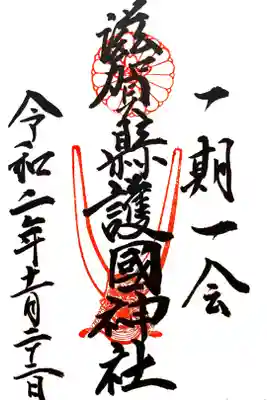 一期一会
滋賀縣護國神社
令和二年十一月二十二日